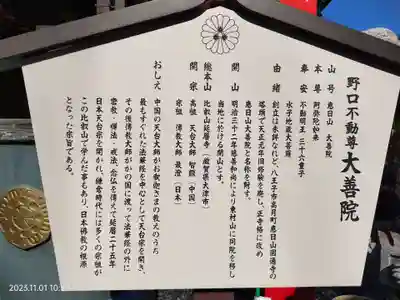 野口不動尊 大善院
山号 恵日山 大善院
本尊 阿弥陀如来
奉安 不動明王 三十六童子
水子地蔵大菩薩
由緒 創立は未詳なれど、八王子市高月町恵日山圓通寺の
塔頭で天正元年旧修験を廃し、正寺格に改め
恵日山大善院と名称を附す。
開山 明治三十二年慈善和尚により東村山に同院を移し
当地に於ける開山とす。
総本山 比叡山延暦寺(滋賀県大津市)
開宗 高祖 天台大師 智顗(中国)
宗祖 傳教大師 最澄(日本)
おしえ 中国の天台大師がお釈迦さまの教えのうち
最もすぐれた法華経を中心として天台宗を開き、
その後傳教大師がかの国に渡って法華経の外に
密教・禅法・戒法、念仏を傳えて延暦二十五年
日本天台宗を開かれ、鎌倉時代には多くの宗祖が
この比叡山で学んだ事もあり、日本佛教の根源
となった宗旨である。
2023.11.01 10:5